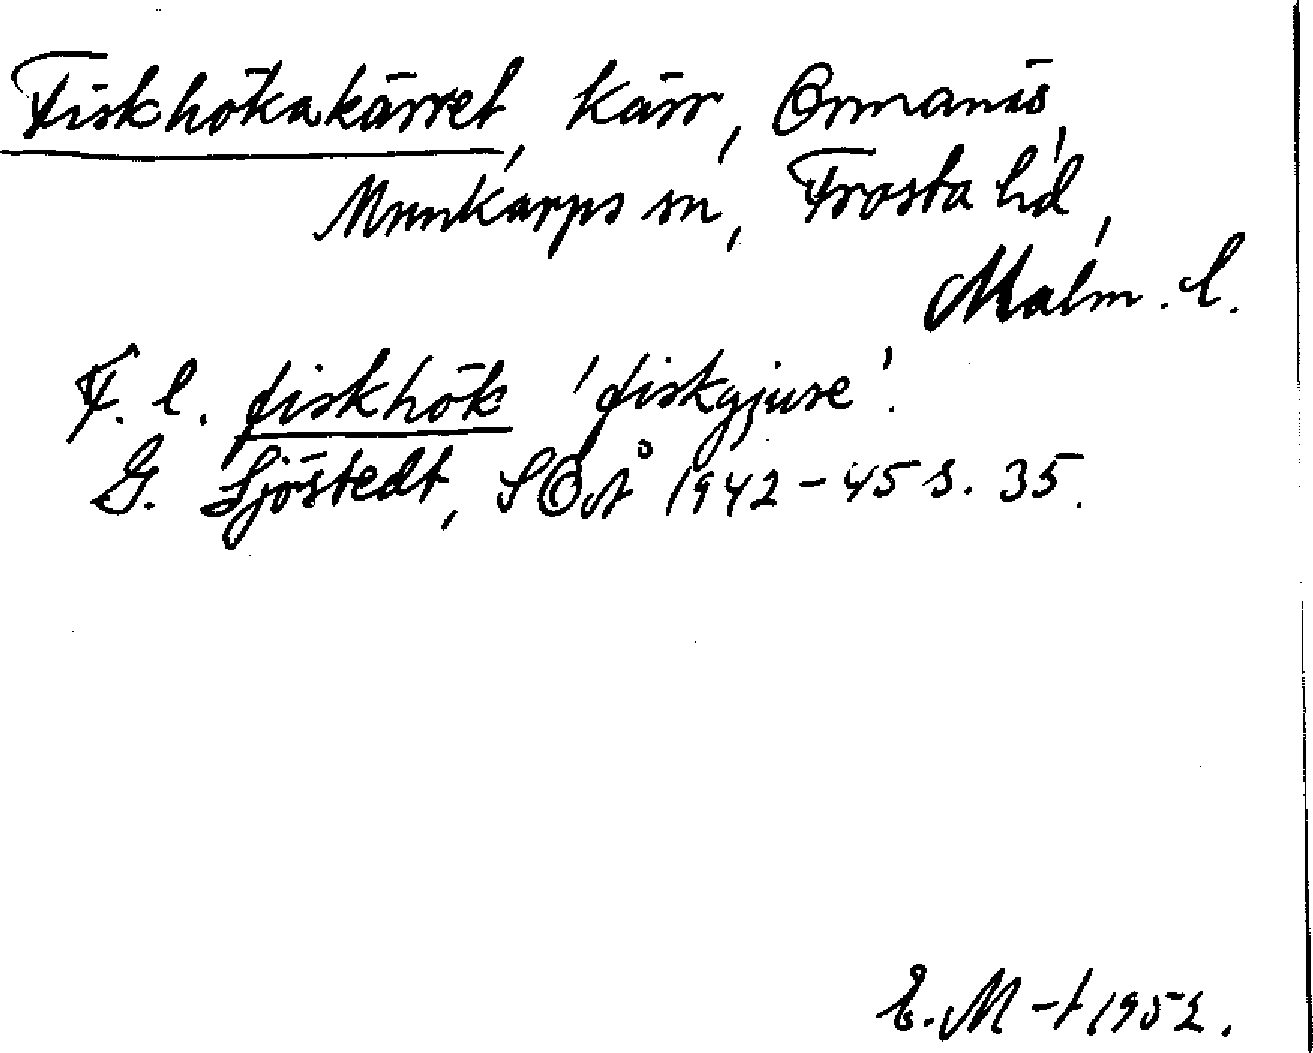 Fiskhökakärret, kärr, Ormanäs,
Munkarps sn, Frosta hd,
Malm. l.
F. l. fiskhök 'fiskgjuse'.
G. Sjöstedt, SOÅ 1942-45 s. 35.
E. M-t 1952.